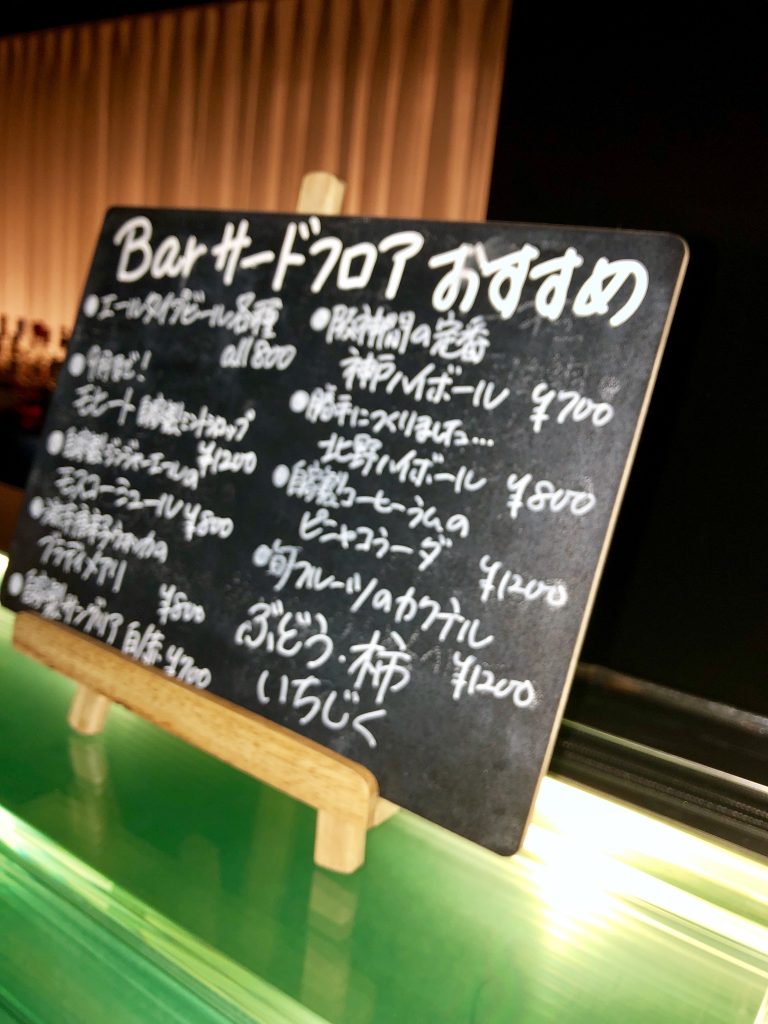 Bar サードフロア おすすめ
●エールタイプビール各種
all 800
モヒート 自家製ミントシロップ
¥1200
●自家製ジンジャーエールの
モスコーミュール ¥800
ブラディメアリ
¥800
●自家製サングリア 自・赤 ¥700
●阪神間の定番
神戸ハイボール ¥700
●勝手につくりました…
北野ハイボール ¥800
●自家製コーヒーラムの
ピニャコラーダ
¥1200
●旬フルーツのカクテル
ぶどう・柿 ¥1200
いちじく